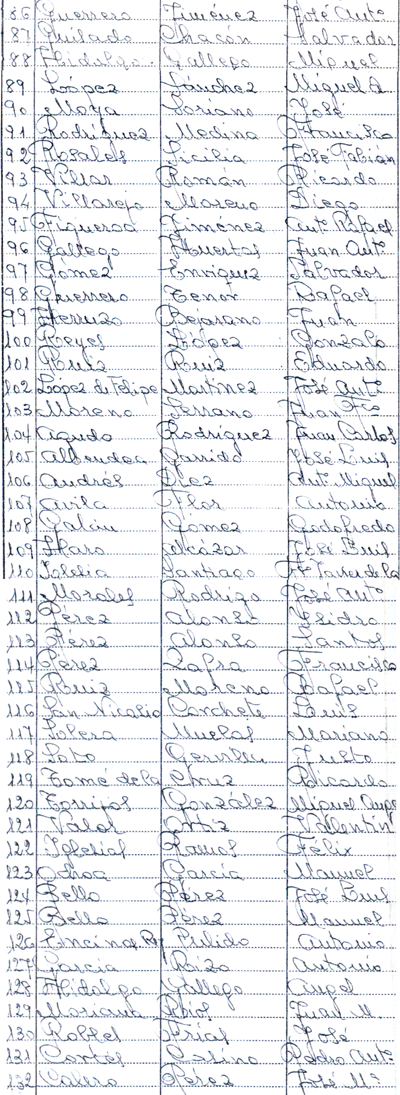 86 Guerrero Jiménez José Antº
87 Quilado Chacón Salvador
88 Hidalgo Gallego Miguel
89 López Sánchez Miguel A.
90 Moya Soriano José
91 Rodríguez Medina Francisco
92 Rosales Sicilia José Fabián
93 Villar Román Ricardo
94 Villarejo Moreno Diego
95 Figueroa Jiménez Ant. Rafael
96 Gallego Huertas Juan Ant.
97 Gómez Enríquez Salvador
98 Guerrero Tenor Rafael
99 Herruzo Bejarano Juan
100 Reyes López Gonzalo
101 Ruiz Ruiz Eduardo
102 López de Felipe Martínez José Antº
103 Moreno Serrano Juan Fcº
104 Agudo Rodríguez Juan Carlos
105 Garrido José Luis
106 Andrés Díez Ant. Miguel
107 Avila Flor Antonio
108 Galcin Gómez Godofredo
109 Haro Alcázar José Luis
110 Iglelia Santiago
111 Morales Rodrigo José Antº
112 Pérez Alonso Isidro
113 Pérez Alonso Santos
114 Pérez Zafra Francisco
115 Ruiz Moreno Rafael
116 San Nicolás Corchete Luis
117 Solera Muelas Mariano
118 Soto Justo
119 Tomé de la Cruz Ricardo
120 Torrijos González Miguel Ange
121 Valor Ortiz Valentín
122 Iglesias Ramos Félix
123 Ochoa García Manuel
124 Bello Pérez José Luis
125 Bello Pérez Manuel
126 Encina Pulido Antonio
127 García Rizo Antonio
128 Hidalgo Gallego Angel
129 Moriana Ríos Juan M.
130 Robles Frías José
131 Cortés Pedro Antº
132 Valero Pérez José Mª